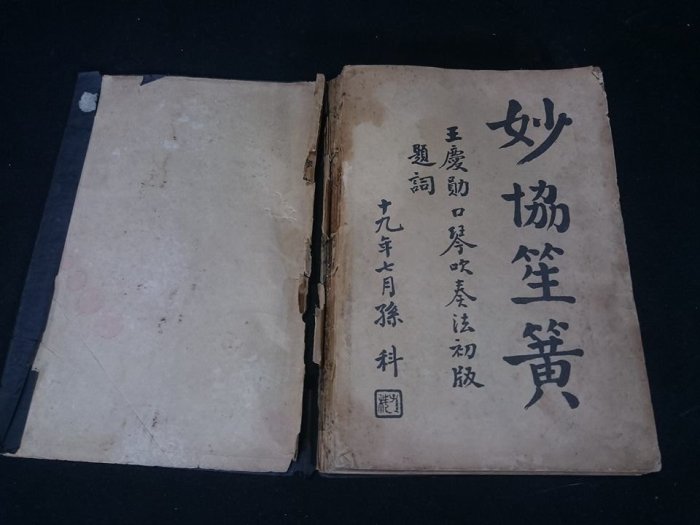 妙協笙簧
王慶勛口琴吹奏法初版
題詞
十九年七月孫科